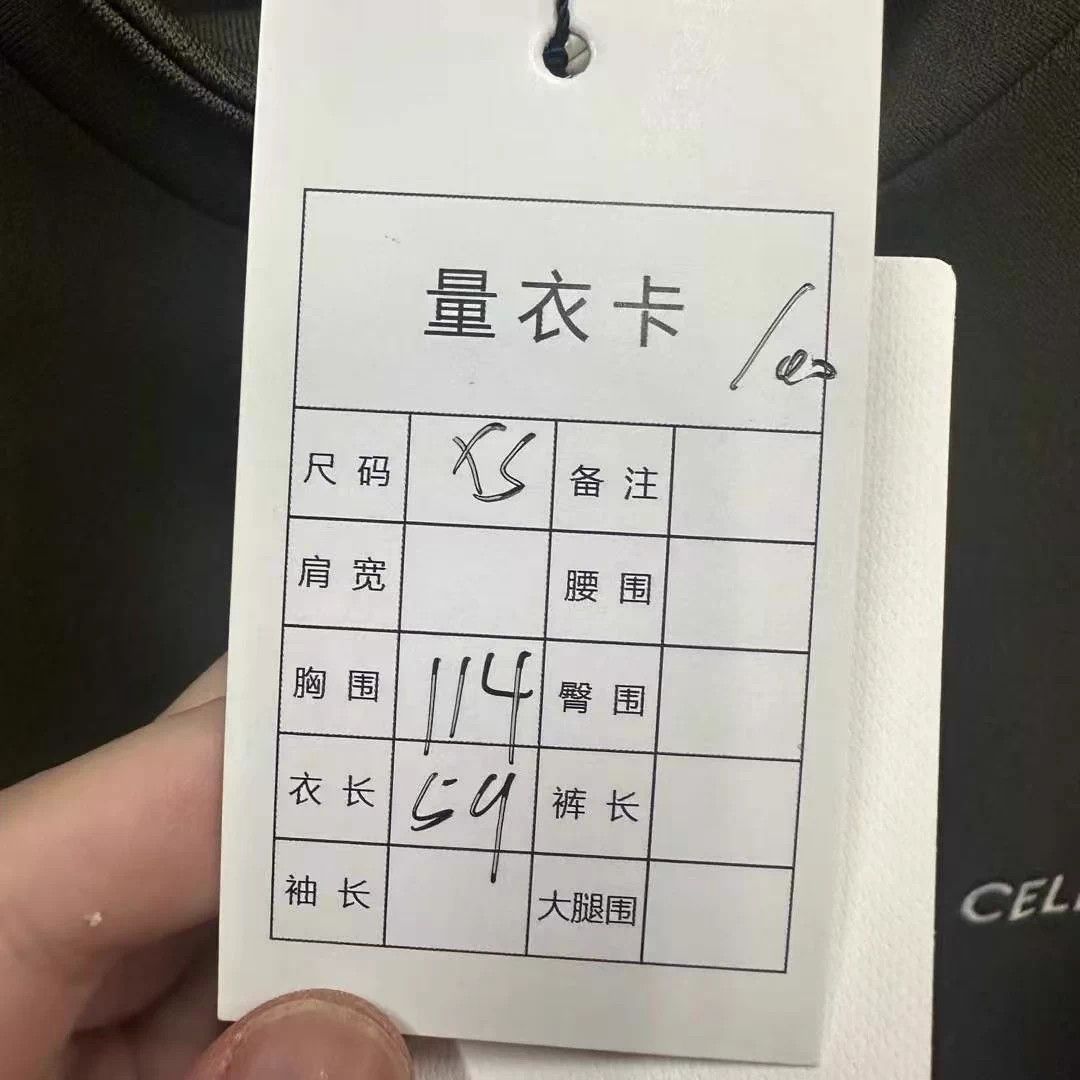 量衣卡
尺码 XS 备注
肩宽 腰围
胸围 114 臀围
衣长 59 裤长
袖长 大腿围
CEL